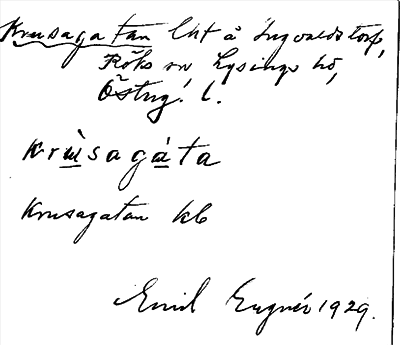 Krusagatan lht å Ingvaldstorp,
Röks sn, Lysings hd,
Österg. l.
Krùsagáta
Krusagatan kb
Emil Eugnér 1929.